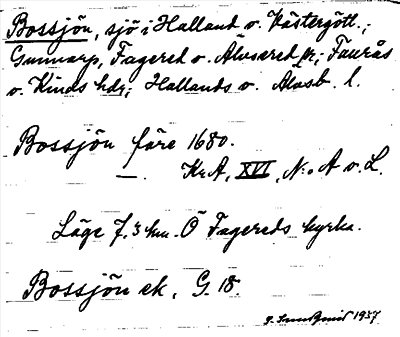 Bossjön, sjö i Halland o. Västergötl.;
Gunnarp, Fagered o. Älvsered sn; Faurås
o. Kinds hdr; Hallands o. Älvsb. l.
Bossjön före 1680.
—. KrA, XVI, N:o A o. L.
Läge 7.3 km. Ö Fagereds kyrka.
Bossjön ek. G. 18.
1937